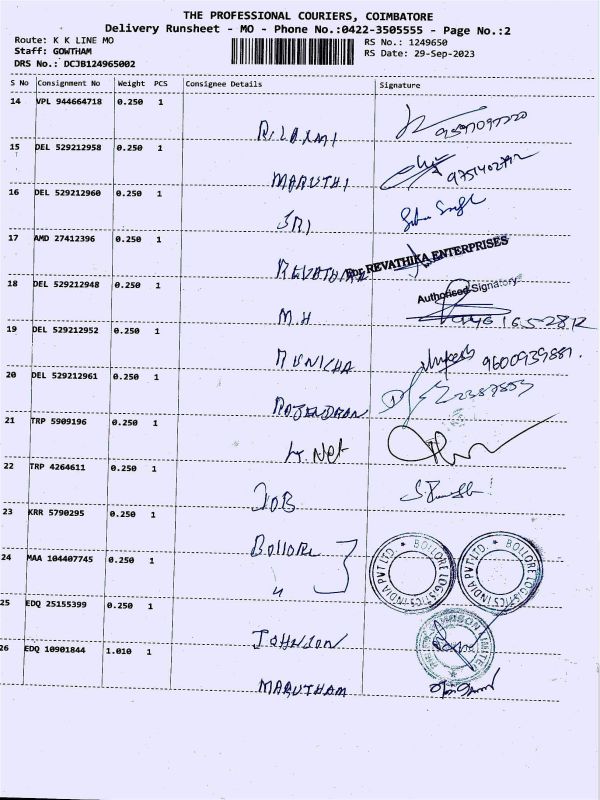 THE PROFESSIONAL COURIERS, COIMBATORE
Delivery Runsheet - MO - Phone No.:0422-3505555 - Page No.:2
Route: K K LINE MO
Staff: GOWTHAM
DRS No.: DCJB124965002
RS No.: 1249650
RS Date: 29-Sep-2023
S No Consignment No Weight PCS Consignee Details Signature
14 VPL 944664718 0.250 1
15 DEL 529212958 0.250 1
MARUTHI
16 DEL 529212960 0.250 1
SRI
17 AMD 27412396 0.250 1
For REVATHIKA ENTERPRISES
Authorised Signatory
18 DEL 529212948 0.250 1
M.H
19 DEL 529212952 0.250 1
9600939881.
20 DEL 529212961 0.250 1
RAJENDRAN
21 TRP 5909196 0.250 1
Net
22 TRP 4264611 0.250 1
JOB
23 KRR 5790295 0.250 1
Bollore
BOLLORE LOGISTICS INDIA PVT LTD.
BOLLORE LOGISTICS INDIA PVT LTD.
24 MAA 104407745 0.250 1
25 EDQ 25155399 0.250 1
JOHNSON
26 EDQ 10901844 1.010 1
MARUTHAM